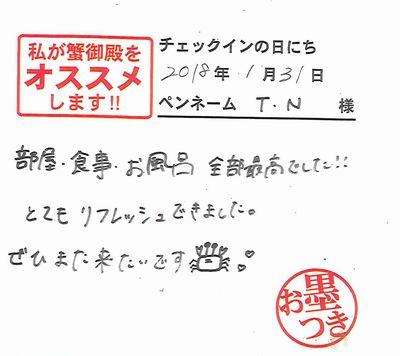 私が蟹御殿を
オススメ
します!!
チェックインの日にち
2018年 1月31日
ペンネーム T.N 様
部屋・食事・お風呂 全部最高でした!!
とてもリフレッシュできました。
ぜひまた来たいです
お墨
つき